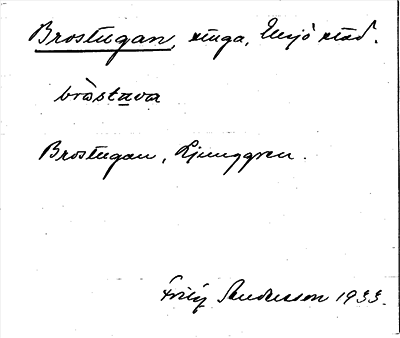 Brostugan, stuga, Ensjö städ.
bròstava
Brostugan, Ljunggren.
Fritz Andersson 1933.